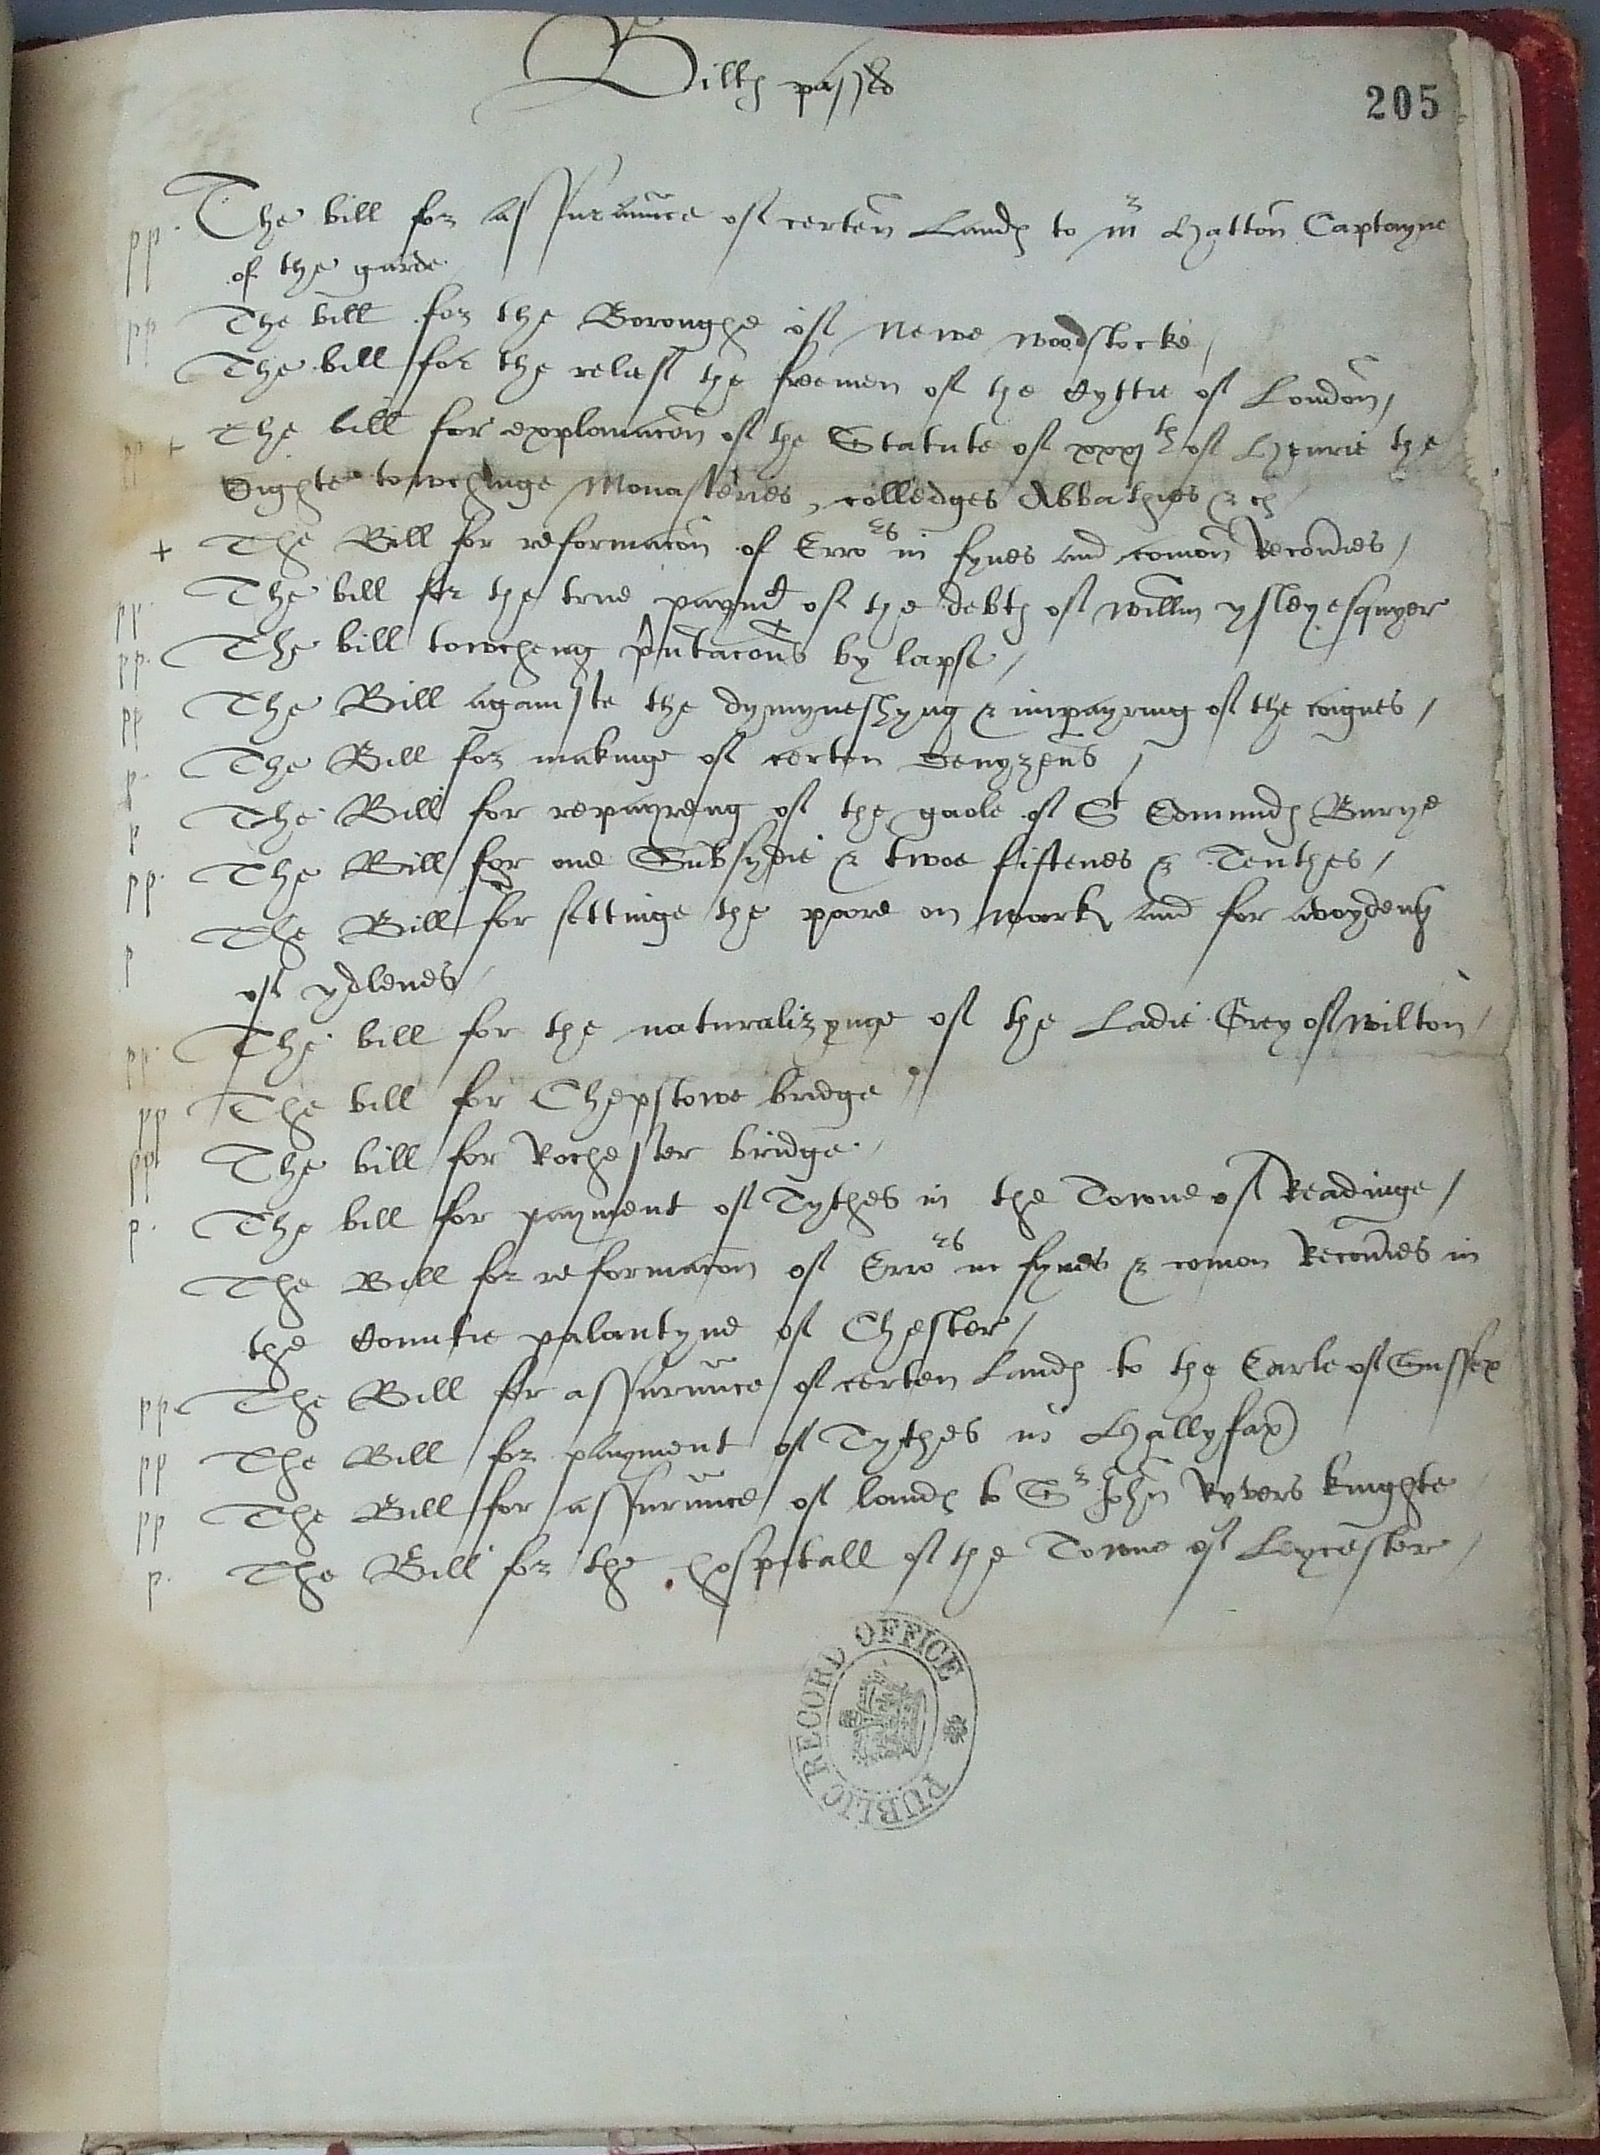 Billes passed
205
pp. The bill for assuraunce of certen Landes to mr Hatton Captayne
of the garde
pp The bill for the Boroughe of Newe woodstocke /
The bill for the relief the freemen of the Cyttie of London /
pp + The bill for explanacon of the Statute of xxxj th of Henrie the
Eighte towchinge Monasteries, colledges Abbathies &c /
+ The Bill for reformacon of Erro rs in fynes and comon Recoueries /
pp. The bill for the true paymt of the debtes of Willm ysley esquyer
pp. The bill towcheng pntacons by lapse /
pp The Bill againste the dymyneshyng & impayring of the coignes /
p. The Bill for makinge of certen Denyzens /
p The Bill for repayreng of the gaole of St Edmundes Burye
pp. The Bill for one Subsydie & twoe fiftenes & Tenthes /
p The Bill for settinge the poore on work and for avoydeng
of ydlenes /
pp. The bill for the naturalizynge of the Ladie Grey of Wilton /
pp The bill for Chepstowe bridge /
pp The bill for Rochester bridge /
p. The bill for payment of Tythes in the Towne of Readinge /
The Bill for reformacon of Erro rs in fynes & comon Recoueries in
the Countie palantyne of Chester /
pp. The Bill for assuraunce of certen Landes to the Earle of Sussex
pp The Bill for payment of Tythes in Hallyfax
pp The Bill for assuraunce of landes to Sr John Ryvers knighte
p. The Bill for the hospitall of the Towne of Leycester /
PUBLIC RECORD OFFICE